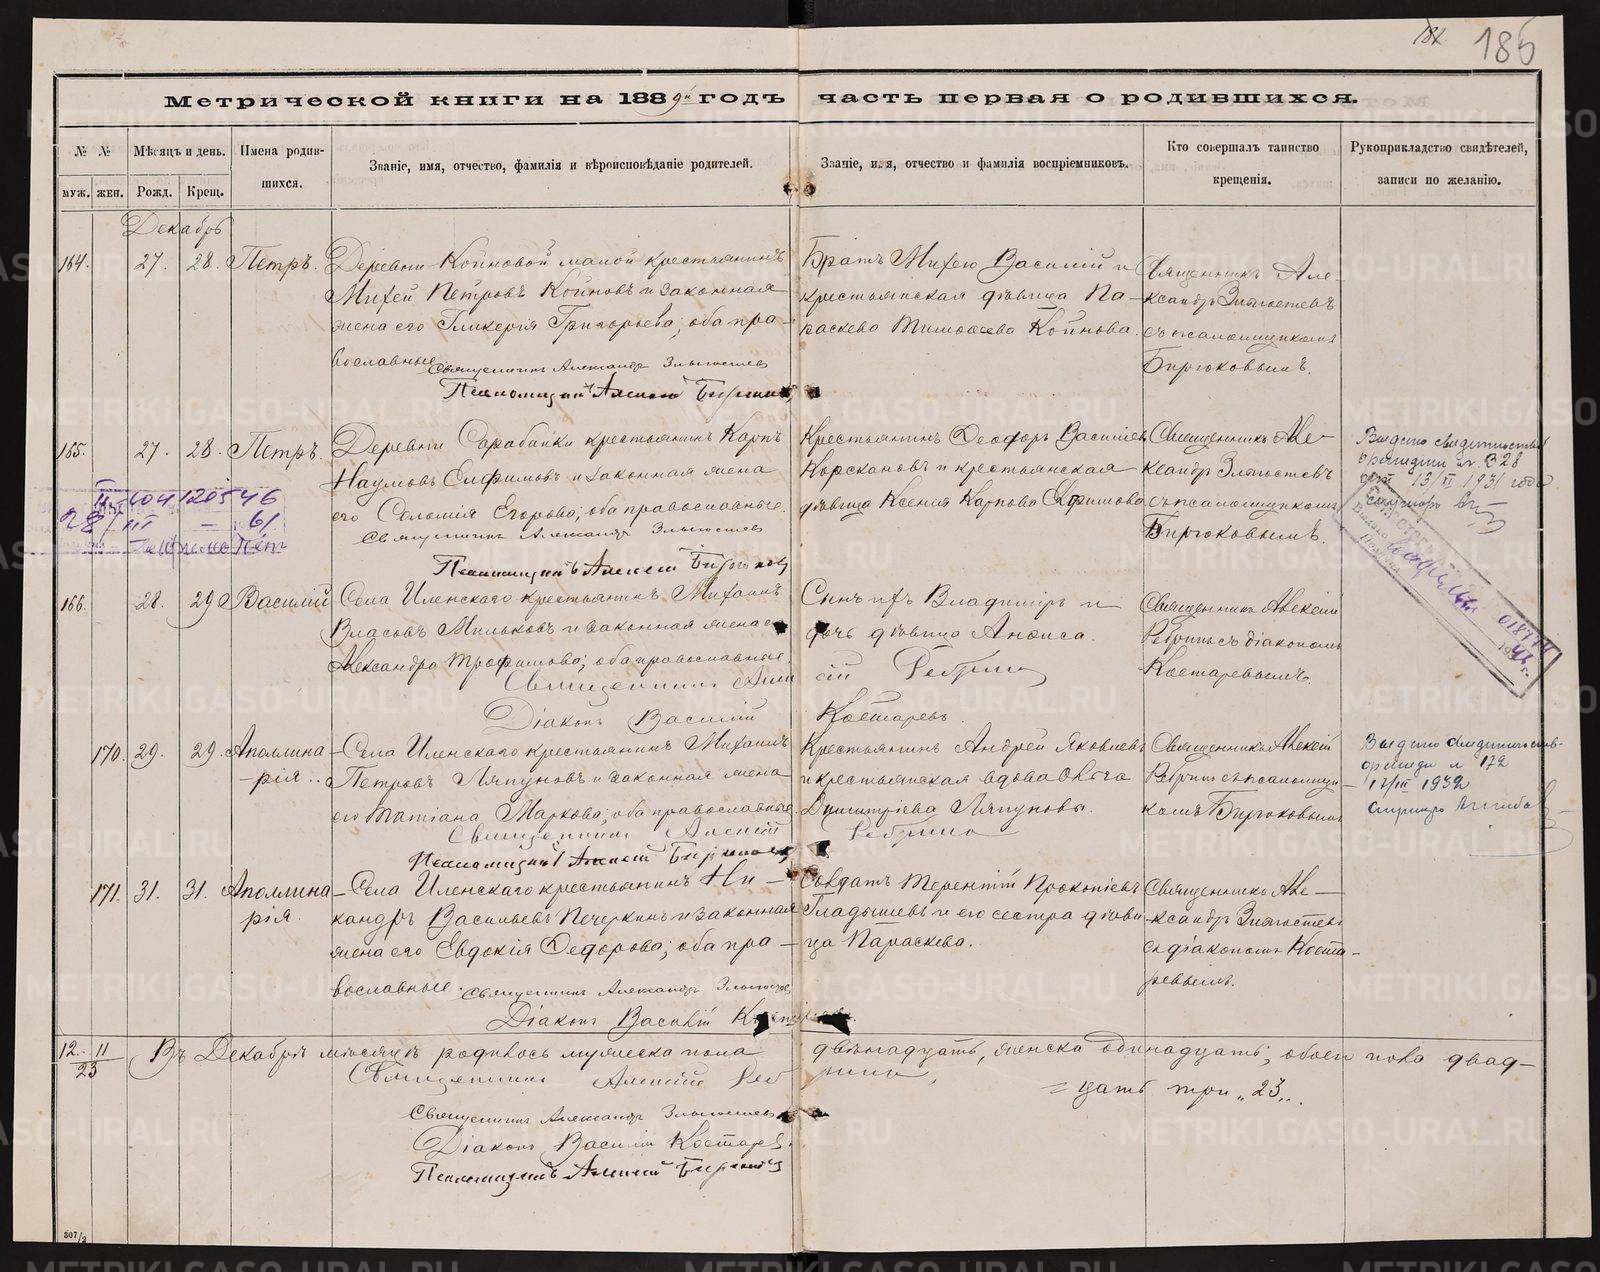 181 185
Метрической книги на 1889й годъ часть первая о родившихся.
№ №
муж. жен.
Мѣсяцъ и день.
Рожд. Крещ.
Имена родив-
шихся.
Званіе, имя, отчество, фамилія и вѣроисповѣданіе родителей.
Званіе, имя, отчество и фамилія воспріемниковъ.
Кто совершалъ таинство
крещенія.
Рукоприкладство свидѣтелей,
записи по желанію.
Декабрь
164. 27. 28. Петръ.
Деревни Койновой малой крестьянинъ
Михей Петровъ Койновъ и законная
жена его Гликерія Григорьева; оба пра-
вославные
Священникъ Александръ Златостевъ
Псаломщикъ Алексій Бирюковъ
Братъ Михею Василій и
крестьянская дѣвица Па-
раскева Тимофеева Койнова.
Священникъ Але-
ксандръ
съ псаломщикомъ
Бирюковымъ.
165. 27. 28. Петръ.
Деревни Сарабайки крестьянинъ Карпъ
Наумовъ Елфимовъ и законная жена
его Соломія Егорова; оба православные.
Священникъ Александръ
Псаломщикъ Алексій Бирюковъ
Крестьянинъ Ѳеодоръ Василіев
Корскановъ и крестьянская
дѣвица Ксенія Карпова Елфимова
Священникъ Але-
ксандръ
съ псаломщикомъ
Бирюковымъ.
Выдано свидетельство
о рождении № 328
13/II 1931 года
28/III — 61
166. 28. 29 Василій
Села Иленскаго крестьянинъ Михаилъ
Власовъ Мильковъ и законная жена его
Александра Трофимова; оба православные.
Священникъ Алексій Ребринъ
Діаконъ Василій Костаревъ.
Сынъ ихъ Владиміръ и
дочь дѣвица Анфиса.
Священникъ Алексій
Ребринъ съ діакономъ
Костаревымъ.
170. 29. 29. Аполлина-
рія.
Села Иленскаго крестьянинъ Михаилъ
Петровъ Ляпуновъ и законная жена
его Татіана Маркова; оба православные.
Священникъ Алексій Ребринъ
Псаломщикъ Алексій Бирюковъ
Крестьянинъ Андрей Яковлевъ
и крестьянская вдова Ольга
Димитріева Ляпуновы.
Священникъ Алексій
Ребринъ съ псаломщи-
комъ Бирюковымъ
Выдано свидетельство
о рожден № 172
17/III 1932
171. 31. 31. Аполлина
рія.
Села Иленскаго крестьянинъ Ни-
кандръ Васильевъ Печеркинъ и законная
жена его Евдокія Ѳедорова; оба пра-
вославные.
Священникъ Александръ
Діаконъ Василій Костаревъ.
Солдатъ Терентій Прокопіевъ
Гладышевъ и его сестра дѣви-
ца Параскева.
Священникъ Але-
ксандръ
съ діакономъ Коста-
ревымъ.
12. 11
23
Въ Декабрѣ мѣсяцѣ родилось мужеска пола двѣнадцать, женска одинадцать; обоего пола двад-
цать три „23„.
Священникъ Алексій Ребринъ,
Священникъ Александръ
Діаконъ Василій Костаревъ.
Псаломщикъ Алексій Бирюковъ
307/2
METRIKI.GASO-URAL.RU